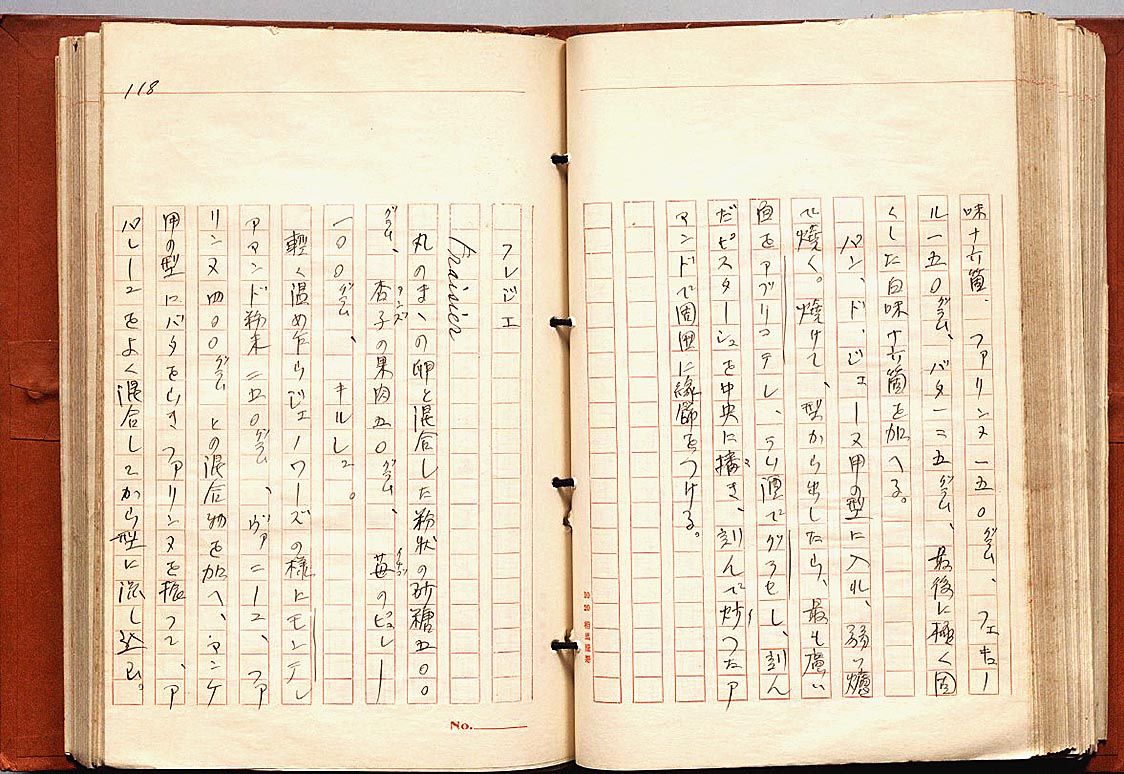 味十六箇、ファリンヌ一五〇グラム、フェキュー
ル一五〇グラム、バター二五グラム、最後に極く固
くした白味十六箇を加へる。
パン、ド、ジェーヌ用の型に入れ、弱い爐
で燒く。燒けて、型から出したら、最も廣い
面をアブリコテし、ラム酒でグラセし、刻ん
だピスターシュを中央に播き、刻んで炒つたア
マンドで周囲に緣飾をつける。
10 20 相馬屋製
フレジエ
Fraisier
丸のまゝの卵と混合した粉狀の砂糖五〇〇
グラム、杏子の果肉五〇グラム、苺のピュレー
アンズ
イチゴ
一〇〇グラム、キルシ。
輕く温め乍らジェノワーズの樣にモンテし
アマンド粉末二五〇グラム、ヴァニーユ、ファ
リンヌ四〇〇グラムとの混合物を加へ、マンケ
用の型にバタをしきファリンヌを振つて、ア
パレーユをよく混合してから型に流し込む。
118
No.